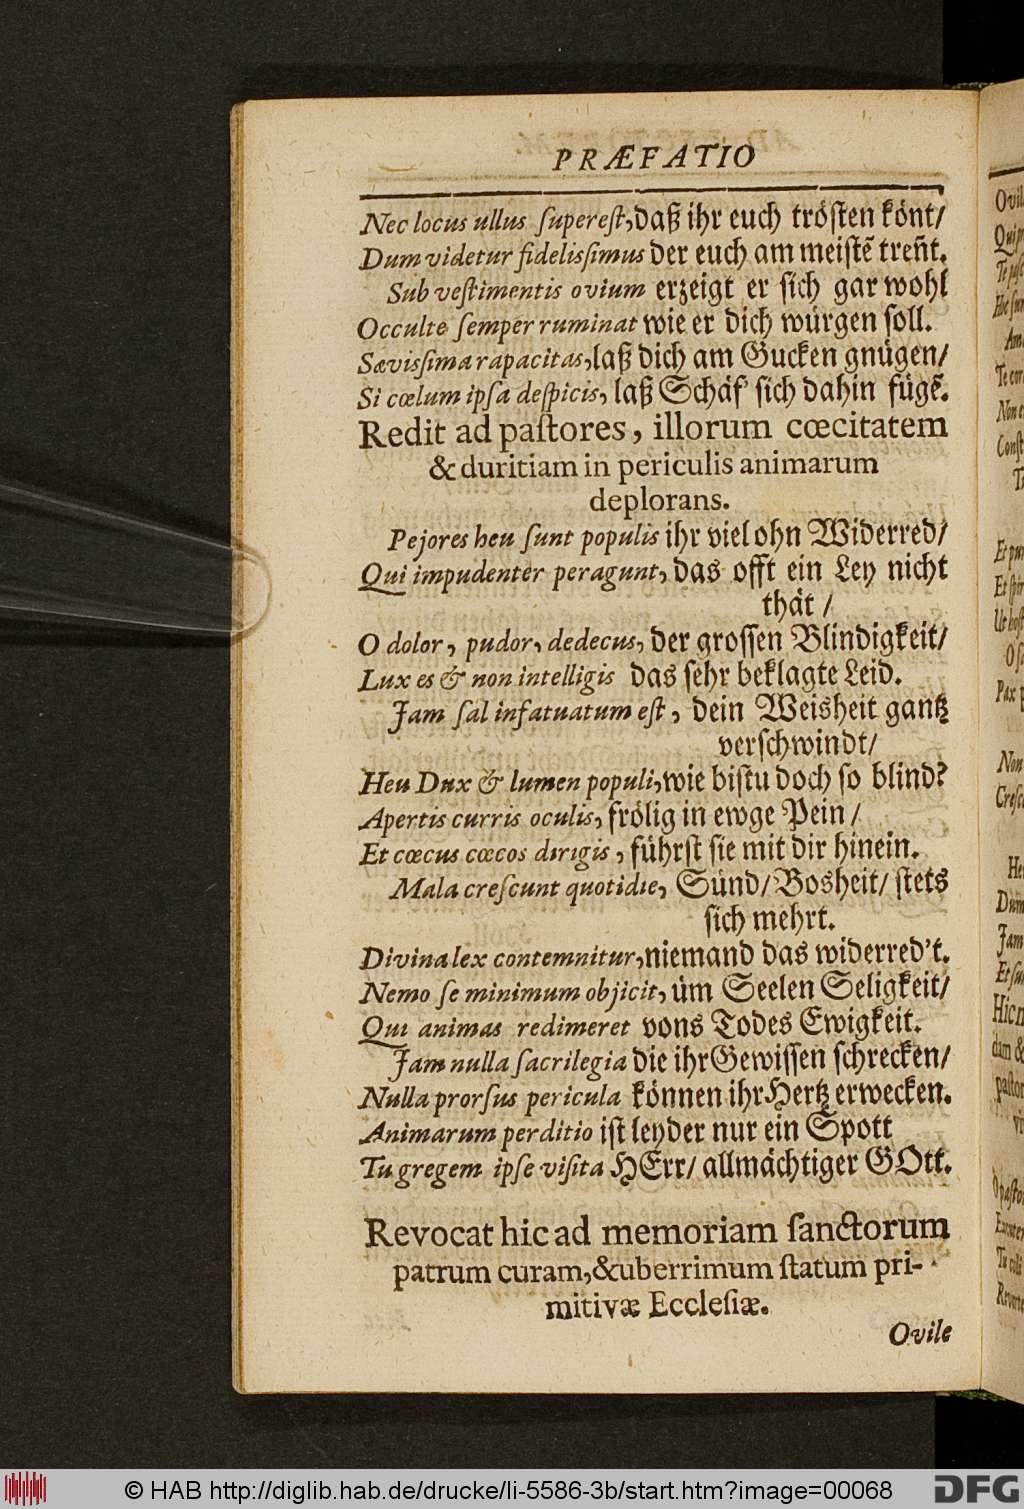 PRÆFATIO
Nec locus ullus ſupereſt, daß ihr euch tröſten könt/
Dum videtur fidelisſimus der euch am meiſtẽ treñt.
Sub veſtimentis ovium erzeigt er ſich gar wohl
Occulte ſemper ruminat wie er dich würgen ſoll.
Sævisſima rapacitas, laß dich am Gucken gnügen/
Si cœlum ipſa deſpicis, laß Schäf' ſich dahin fügẽ.
Redit ad paſtores, illorum cœcitatem
& duritiam in periculis animarum
deplorans.
Pejores heu ſunt populis ihr viel ohn Widerred/
Qui impudenter peragunt, das offt ein Ley nicht
thät /
O dolor, pudor, dedecus, der groſſen Blindigkeit/
Lux es & non intelligis das ſehr beklagte Leid.
Jam ſal infatuatum eſt, dein Weisheit gantz
verſchwindt/
Heu Dux & lumen populi, wie biſtu doch ſo blind?
Apertis curris oculis, frölig in ewge Pein /
Et cœcus cœcos dirigis, führſt ſie mit dir hinein.
Mala creſcunt quotidie, Sünd/ Bosheit/ ſtets
ſich mehrt.
Divina lex contemnitur, niemand das widerred't.
Nemo ſe minimum objicit, üm Seelen Seligkeit/
Qui animas redimeret vons Todes Ewigkeit.
Jam nulla ſacrilegia die ihr Gewiſſen ſchrecken/
Nulla prorſus pericula können ihr Hertz erwecken.
Animarum perditio iſt leyder nur ein Spott
Tu gregem ipſe viſita HErr/ allmächtiger GOtt.
Revocat hic ad memoriam ſanctorum
patrum curam, & uberrimum ſtatum pri-
mitivæ Eccleſiæ.
Ovile
© HAB http://diglib.hab.de/drucke/li-5586-3b/start.htm?image=00068
DFG